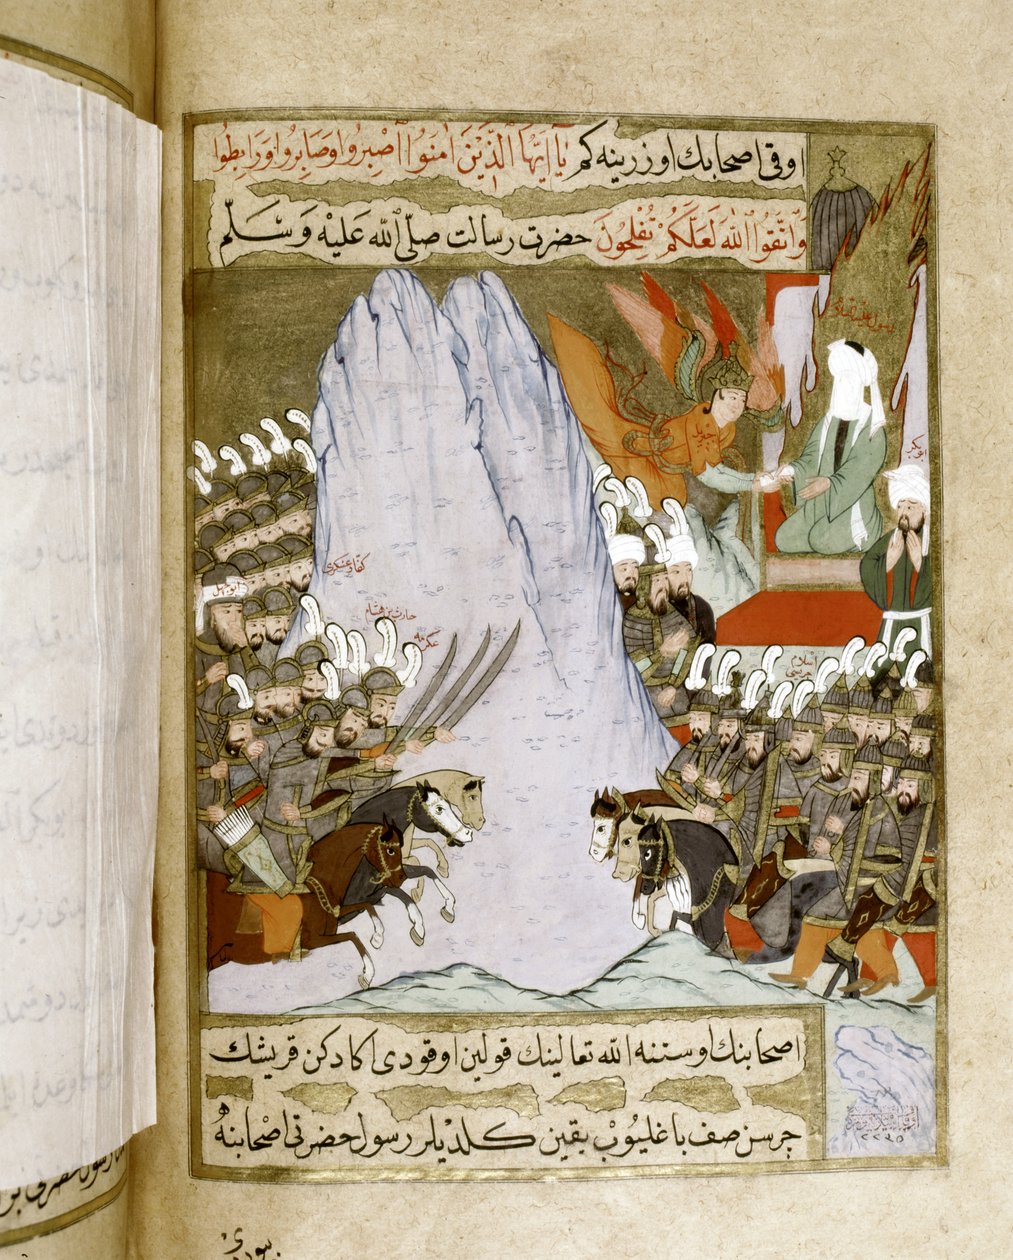 اوقی اصحابك اوزرینه كم یَا اَیُّهَا الَّذِینَ اٰمَنُوا اصْبِرُوا وَصَابِرُوا وَرَابِطُوا
وَاتَّقُوا اللّٰهَ لَعَلَّكُمْ تُفْلِحُونَ حضرت رسالت صلّی اللّه علیه وسلّم
ابوبكر
جبریل
كفار عسكری
ابوجهل
حارث بن هشام
عكرمه
اسلام عسكری
اصحابنك اوستنه اللّه تعالینك قولین اوقودی اكادكن قریشك
چرسن صف باغلیوب یقین كلدیلر رسول حضرتی اصحابنه